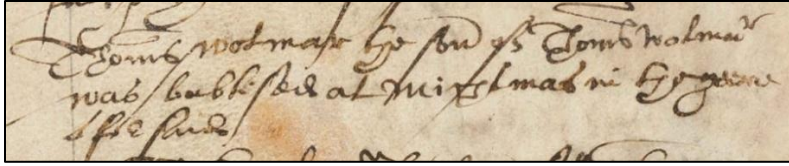 Thoms Wolmar the son of Thoms Wolmar
was babtised at Mighlmas in the yeare
afore said